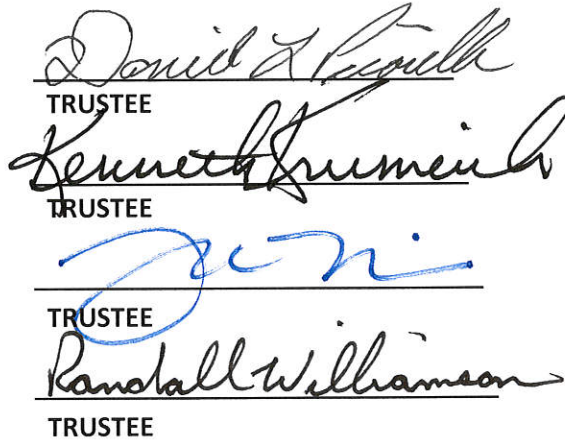 Daniel L
TRUSTEE
Kenneth Krumeich
TRUSTEE
TRUSTEE
Randall Williamson
TRUSTEE